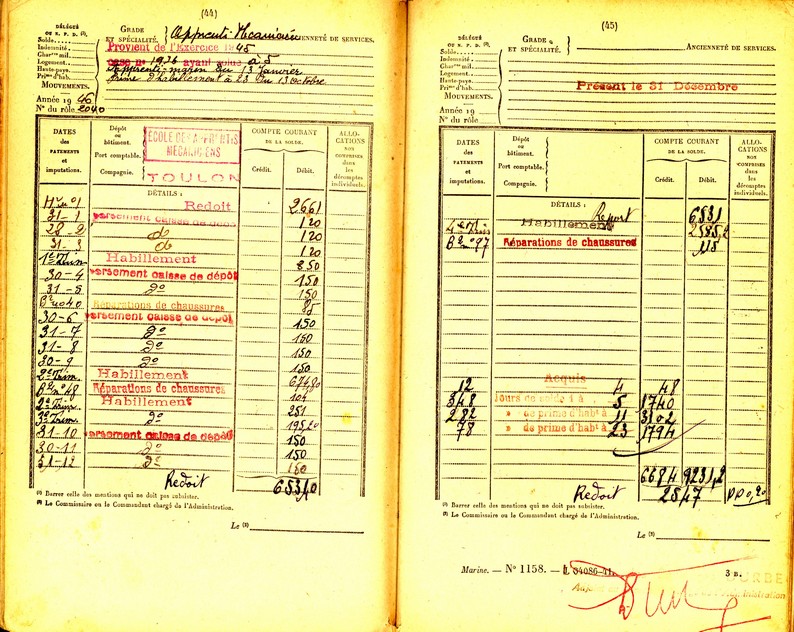 (44)
DÉLÉGUÉ
OU N. P. D. (1).
Solde
Indemnité
Char^ges mil.
Logement
Haute-paye
Pri^mes d'hab.
MOUVEMENTS.
Année 1946
N° du rôle 2040
GRADE
ET SPÉCIALITÉ.
Apprenti Mécanicien
ANCIENNETÉ DE SERVICES.
Provient de l'Exercice 1945
case n° 1926 ayant solde à 5
Apprenti-marin du 13 Janvier
Prime d'habillement à 23 du 13 Octobre
DATES
des
PAYEMENTS
et
imputations.
Dépôt
ou
bâtiment.
Port comptable.
Compagnie.
ÉCOLE DES APPRENTIS
MÉCANICIENS
TOULON
COMPTE COURANT
DE LA SOLDE.
Crédit.
Débit.
ALLO-
CATIONS
NON
COMPRISES
dans
les
décomptes
individuels.
DÉTAILS :
Redoit 2661
31-1 versement caisse de dépôt 120
28-2 d° 120
31-3 d° 120
1er Trim Habillement 850
30-4 versement caisse de dépôt 150
31-5 d° 150
B^e n° 40 Réparations de chaussures 85
30-6 versement caisse de dépôt 150
31-7 d° 150
31-8 d° 150
30-9 d° 150
2e Trim. Habillement 674,80
B^e n° 48 Réparations de chaussures 104
2e Trim. Habillement 251
3e Trim. d° 195,20
31-10 versement caisse de dépôt 150
30-11 d° 150
31-12 d° 150
Redoit 6531,0
(1) Barrer celle des mentions qui ne doit pas subsister.
(2) Le Commissaire ou le Commandant chargé de l'Administration.
Le (2)
(45)
DÉLÉGUÉ
OU N. P. D. (1).
Solde
Indemnité
Char^ges mil.
Logement
Haute-paye
Pri^mes d'hab.
MOUVEMENTS.
Année 19
N° du rôle
GRADE
ET SPÉCIALITÉ.
ANCIENNETÉ DE SERVICES.
Présent le 31 Décembre
DATES
des
PAYEMENTS
et
imputations.
Dépôt
ou
bâtiment.
Port comptable.
Compagnie.
COMPTE COURANT
DE LA SOLDE.
Crédit.
Débit.
ALLO-
CATIONS
NON
COMPRISES
dans
les
décomptes
individuels.
DÉTAILS :
Report 6531
4e Trim Habillement 2585,2
B^e n° 97 Réparations de chaussures 115
Acquis
12 4 48
348 Jours de solde à 5 1740
282 » de prime d'habt à 11 3102
78 » de prime d'habt à 23 1794
6684 9231,2
Redoit 2547
(1) Barrer celle des mentions qui ne doit pas subsister.
(2) Le Commissaire ou le Commandant chargé de l'Administration.
Le (2)
Marine. — N° 1158. — L 34086-41.
3 B.